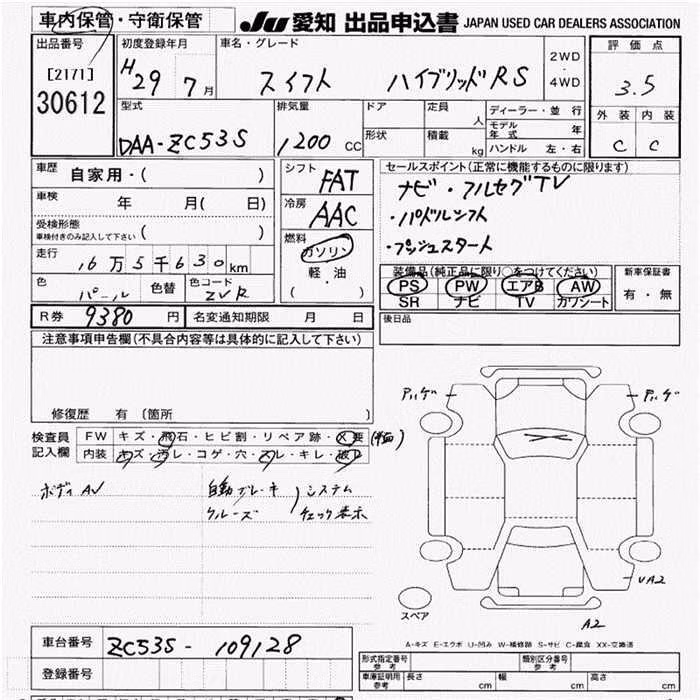 車内保管・守衛保管 JU 愛知 出品申込書 JAPAN USED CAR DEALERS ASSOCIATION
出品番号 初度登録年月 車名・グレード 2WD・4WD 評価点
[2171] H29 7月 スイフト ハイブリッドRS 3.5
30612 外装 内装
型式 排気量 ドア 定員 人 ディーラー・並行 C C
DAA-ZC53S 1200 CC 形状 積載 kg モデル年式 年
ハンドル 左・右
車歴 自家用・( ) シフト FAT セールスポイント(正常に機能するものに限ります)
車検 年 月( 日) 冷房 AAC ナビ・フルセグTV
受検形態 ( ) ・パドルシフト
車検付きのみ記入して下さい 燃料 ガソリン ・プッシュスタート
走行 16万5千630km 軽・油
色 パール 色替 色コード ZVR ( ) 装備品(純正品に限り○をつけてください) 新車保証書
PS PW エアB AW 有・無
SR ナビ TV カワシート
R券 9380円 名変通知期限 月 日 後日品
注意事項申告欄(不具合内容等は具体的に記入して下さい)
修復歴 有 (箇所 )
検査員 FW キズ・飛石・ヒビ割・リペア跡・X要
記入欄 内装 キズ・汚レ・コゲ・穴・スレ・キレ・破レ
アハゲ アハゲ
ボディAU 自動ブレーキ システム
クルーズ チェック表示
UA2
スペア A2
A-キズ E-エクボ U-凹み W-補修跡 S-サビ C-腐食 XX-交換済
車台番号 ZC53S-109128
登録番号 形式指定番号 参考 類別区分番号 参考
車庫証明用 参考 長さ cm 幅 cm 高さ cm